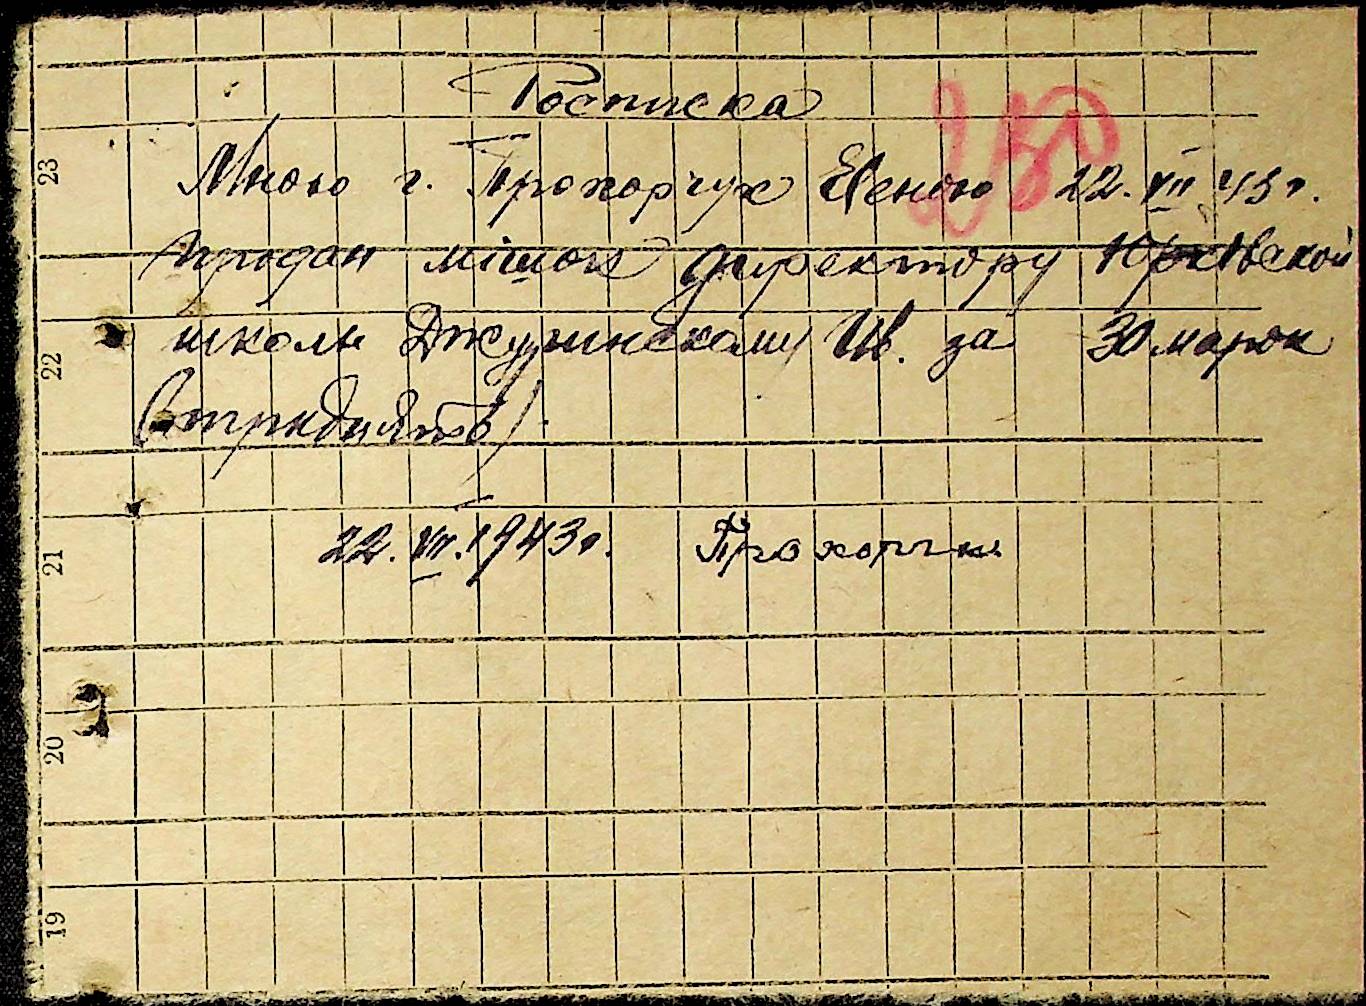 Росписка
250
Мною г. Прохорчук Еленою 22.VII 43 г.
продан мішок директору Юрківской
школы Джуринскому Ив. за 30 марок
(тридцять).
22.VII.1943 г. Прохорчук
23
22
21
20
19